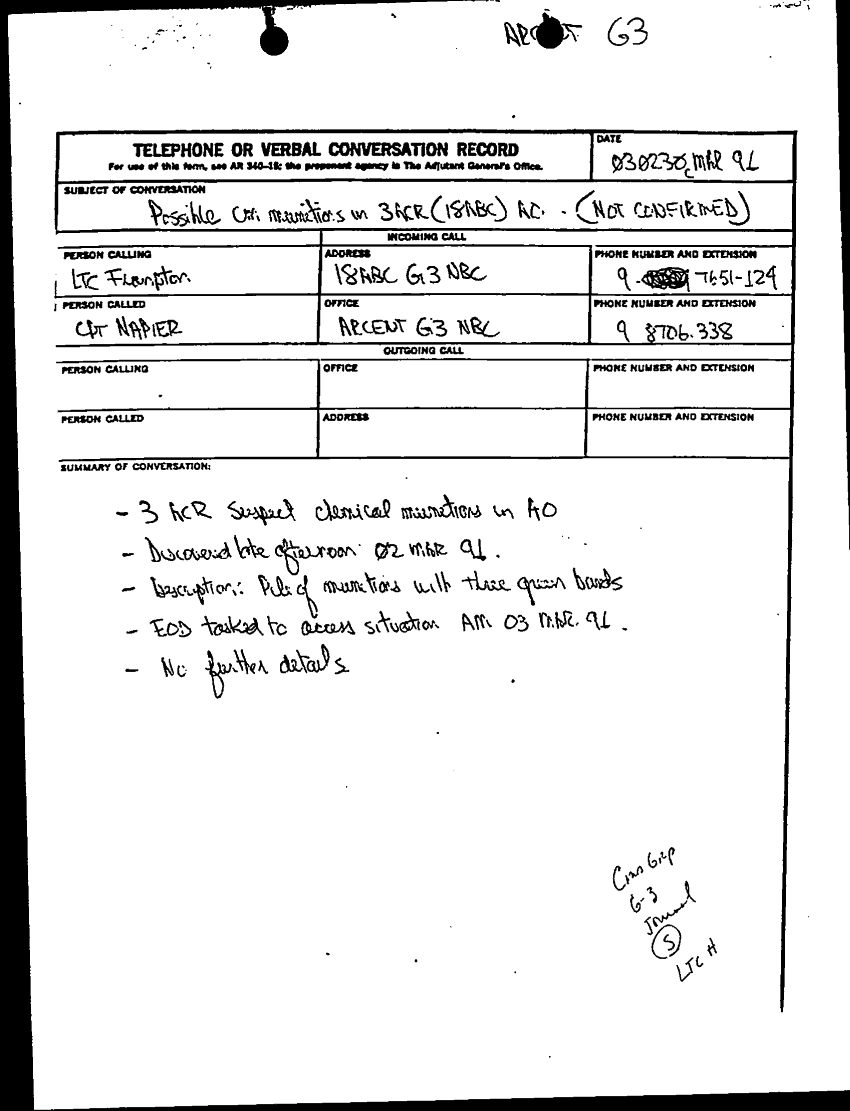 G3
TELEPHONE OR VERBAL CONVERSATION RECORD
For use of this form, see AR 340-15; the proponent agency is The Adjutant General's Office.
DATE
030230C MAR 91
SUBJECT OF CONVERSATION
Possible munitions in 3ACR (18ABC) AO. - (NOT CONFIRMED)
INCOMING CALL
PERSON CALLING
LTC Frampton
ADDRESS
18ABC G3 NBC
PHONE NUMBER AND EXTENSION
9. 7651-124
PERSON CALLED
CPT NAPIER
OFFICE
ARCENT G3 NBC
PHONE NUMBER AND EXTENSION
9 8706.338
OUTGOING CALL
PERSON CALLING
OFFICE
PHONE NUMBER AND EXTENSION
PERSON CALLED
ADDRESS
PHONE NUMBER AND EXTENSION
SUMMARY OF CONVERSATION:
- 3 ACR Suspect chemical munitions in AO
- Discovered late afternoon 02 MAR 91.
- Description: Pile of munitions with three green bands
- EOD tasked to access situation AM 03 MAR. 91.
- No further details
G-3
Journal
S
LTC H